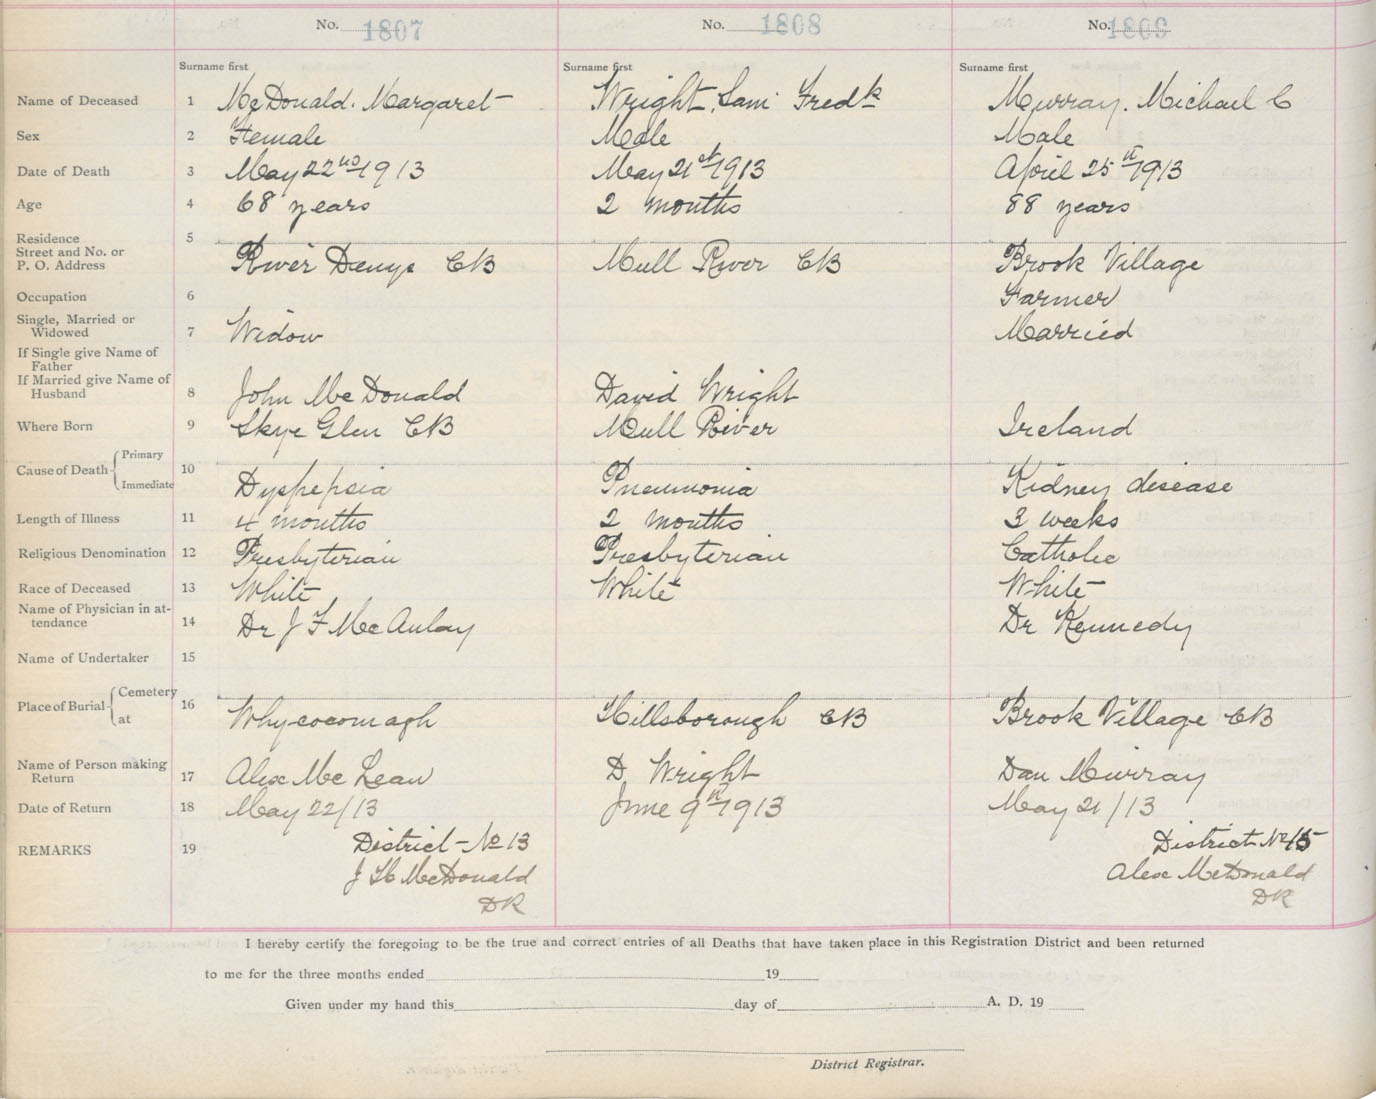 No. 1807 No. 1808 No. 1809
Surname first Surname first Surname first
Name of Deceased 1 McDonald. Margaret Wright, Saml Fredk Murray. Michael C
Sex 2 Female Male Male
Date of Death 3 May 22nd 1913 May 21st 1913 April 25th 1913
Age 4 68 years 2 months 88 years
Residence 5
Street and No. or
P. O. Address River Denys CB Mull River CB Brook Village
Occupation 6 Farmer
Single, Married or
Widowed 7 Widow Married
If Single give Name of
Father
If Married give Name of
Husband 8 John McDonald David Wright
Where Born 9 Skye Glen CB Mull River Ireland
Cause of Death { Primary 10
Immediate Dyspepsia Pneumonia Kidney disease
Length of Illness 11 4 months 2 months 3 weeks
Religious Denomination 12 Presbyterian Presbyterian Catholic
Race of Deceased 13 White White White
Name of Physician in at-
tendance 14 Dr J F McAulay Dr Kennedy
Name of Undertaker 15
Place of Burial { Cemetery 16
at Whycocomagh Hillsborough CB Brook Village CB
Name of Person making
Return 17 Alex McLean D Wright Dan Murray
Date of Return 18 May 22/13 June 9th 1913 May 21/13
REMARKS 19 District No 13 District No 15
J H McDonald Alex McDonald
DR DR
I hereby certify the foregoing to be the true and correct entries of all Deaths that have taken place in this Registration District and been returned
to me for the three months ended 19
Given under my hand this day of A. D. 19
District Registrar.